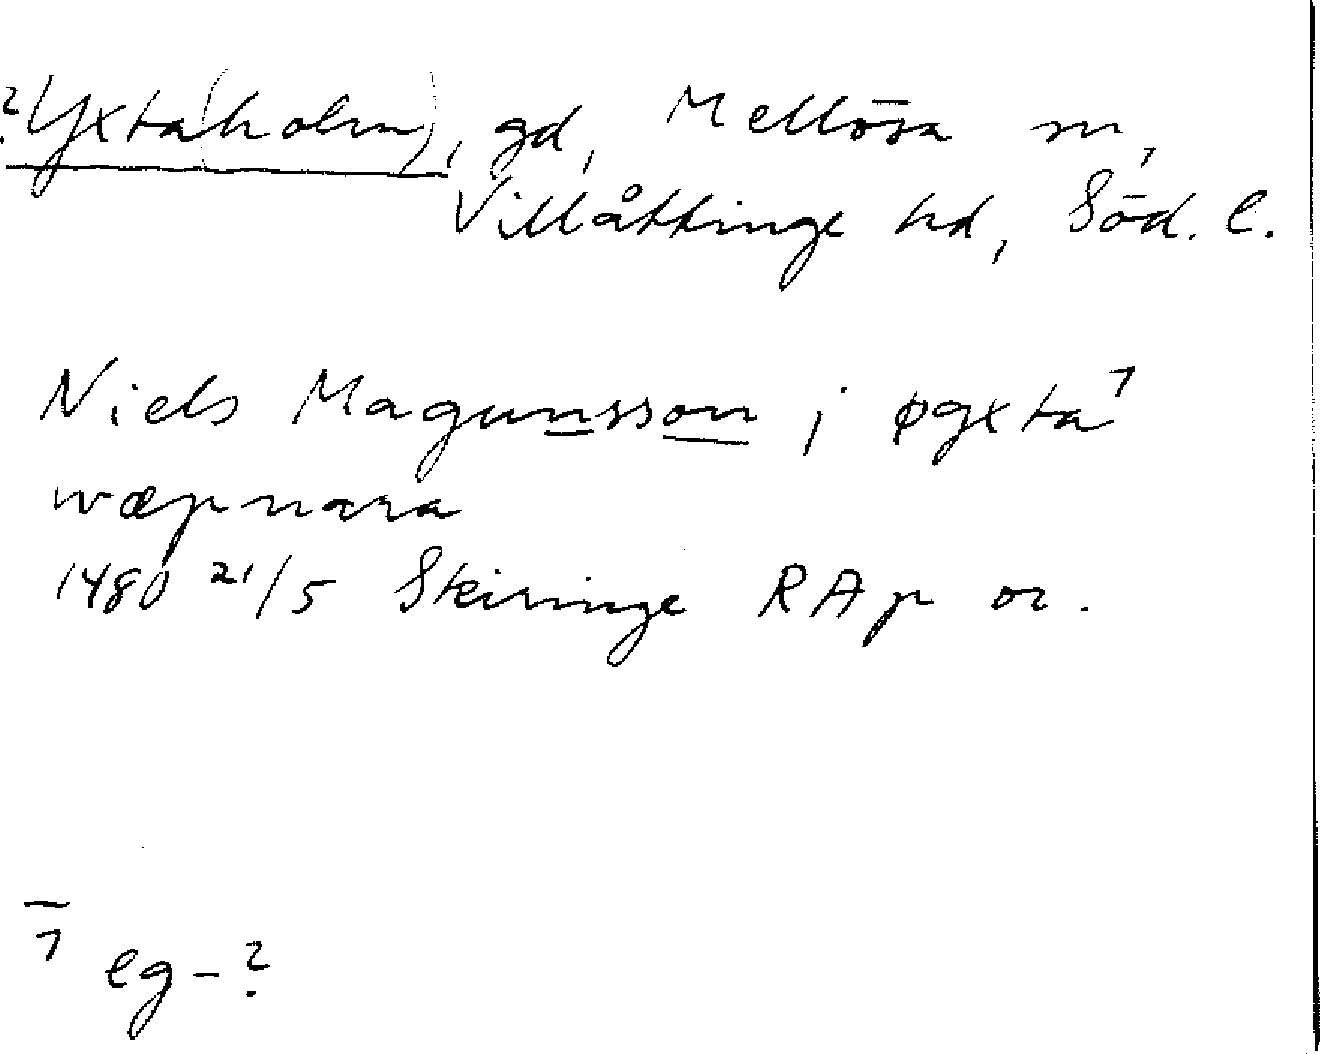 ?Yxta(holm), gd, Mellösa sn,
Villåttinge hd, Söd. l.
Niels Magunsson j øgxta ¹
wæpnara
1480 21/5 Skiringe RAp or.
¹ eg-?